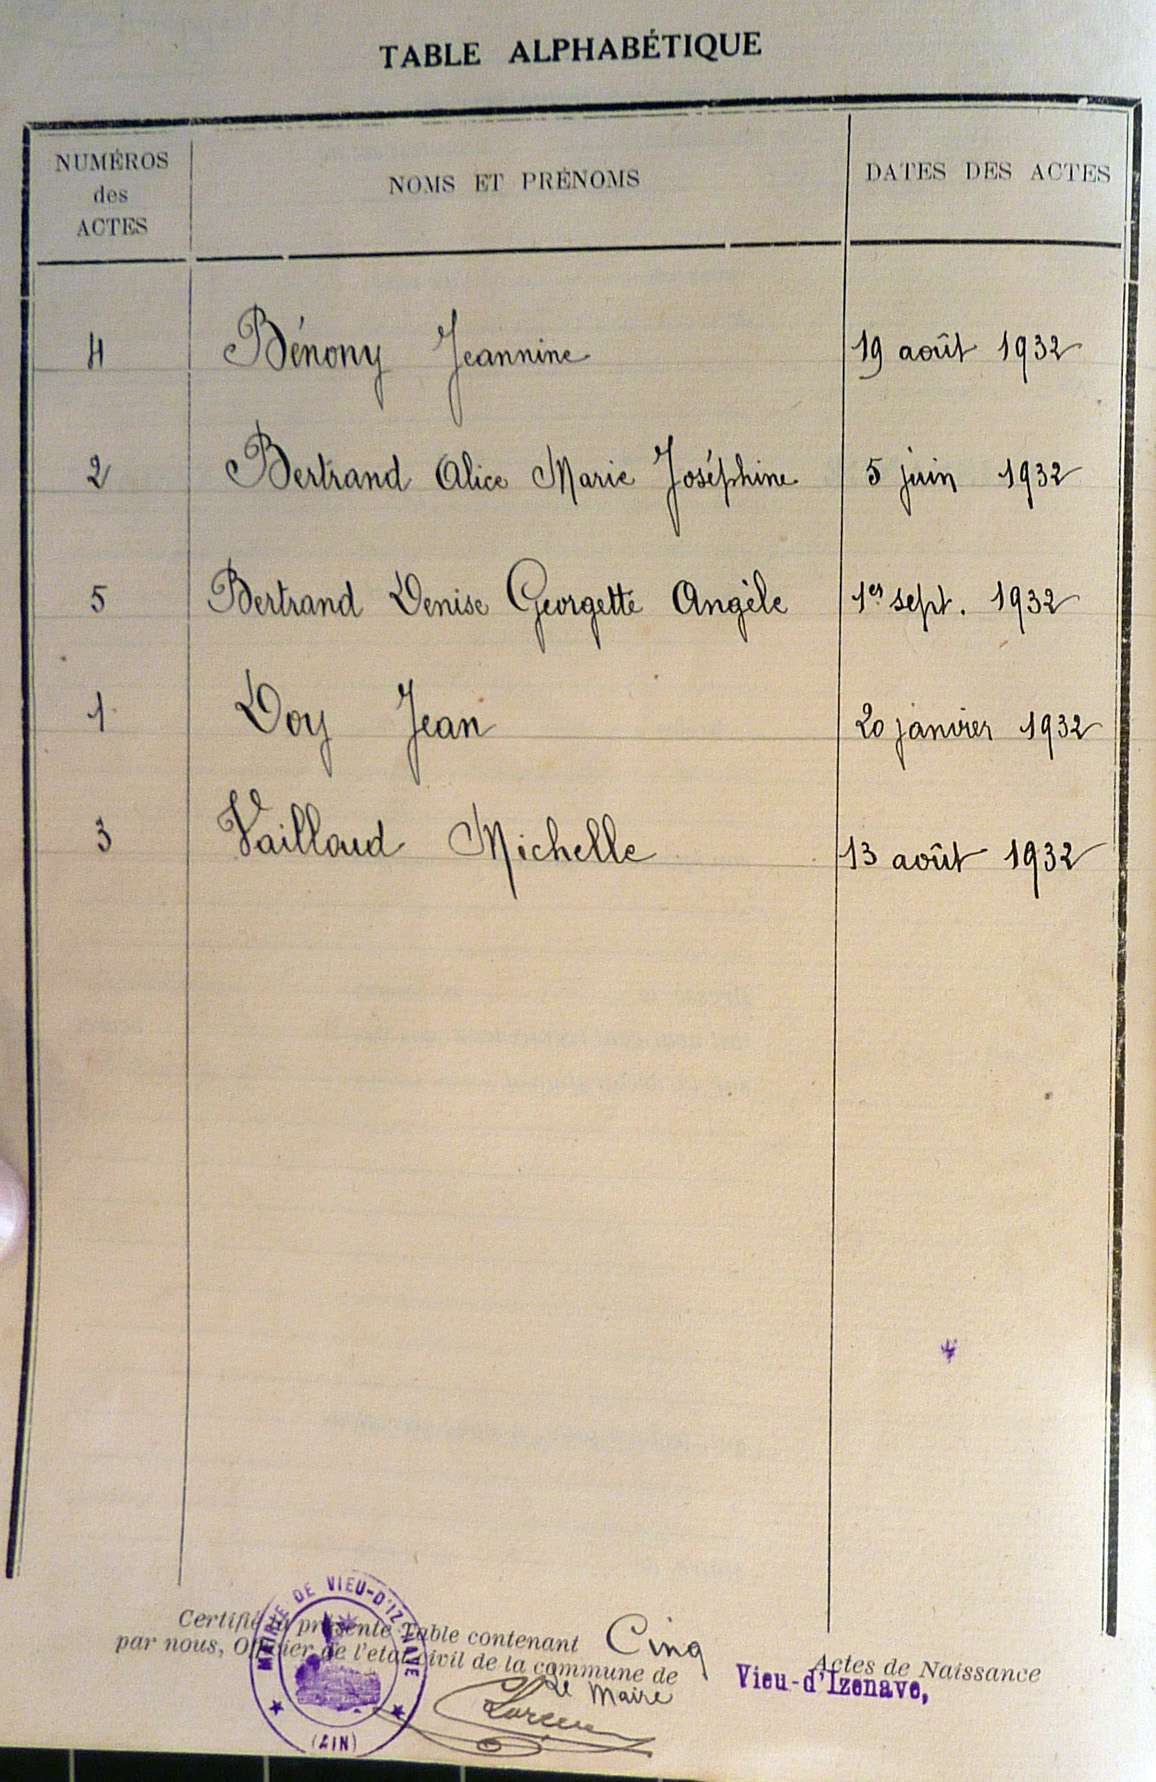 TABLE ALPHABÉTIQUE
NUMÉROS des ACTES NOMS ET PRÉNOMS DATES DES ACTES
4 Bénony Jeannine 19 août 1932
2 Bertrand Alice Marie Joséphine 5 juin 1932
5 Bertrand Denise Georgette Angèle 1er sept. 1932
1 Doy Jean 20 janvier 1932
3 Vailloud Michelle 13 août 1932
Certifié la présente Table contenant Cinq Actes de Naissance
par nous, Officier de l'etat civil de la commune de Vieu-d'Izenave,
Le Maire
MAIRIE DE VIEU-D'IZENAVE
(AIN)